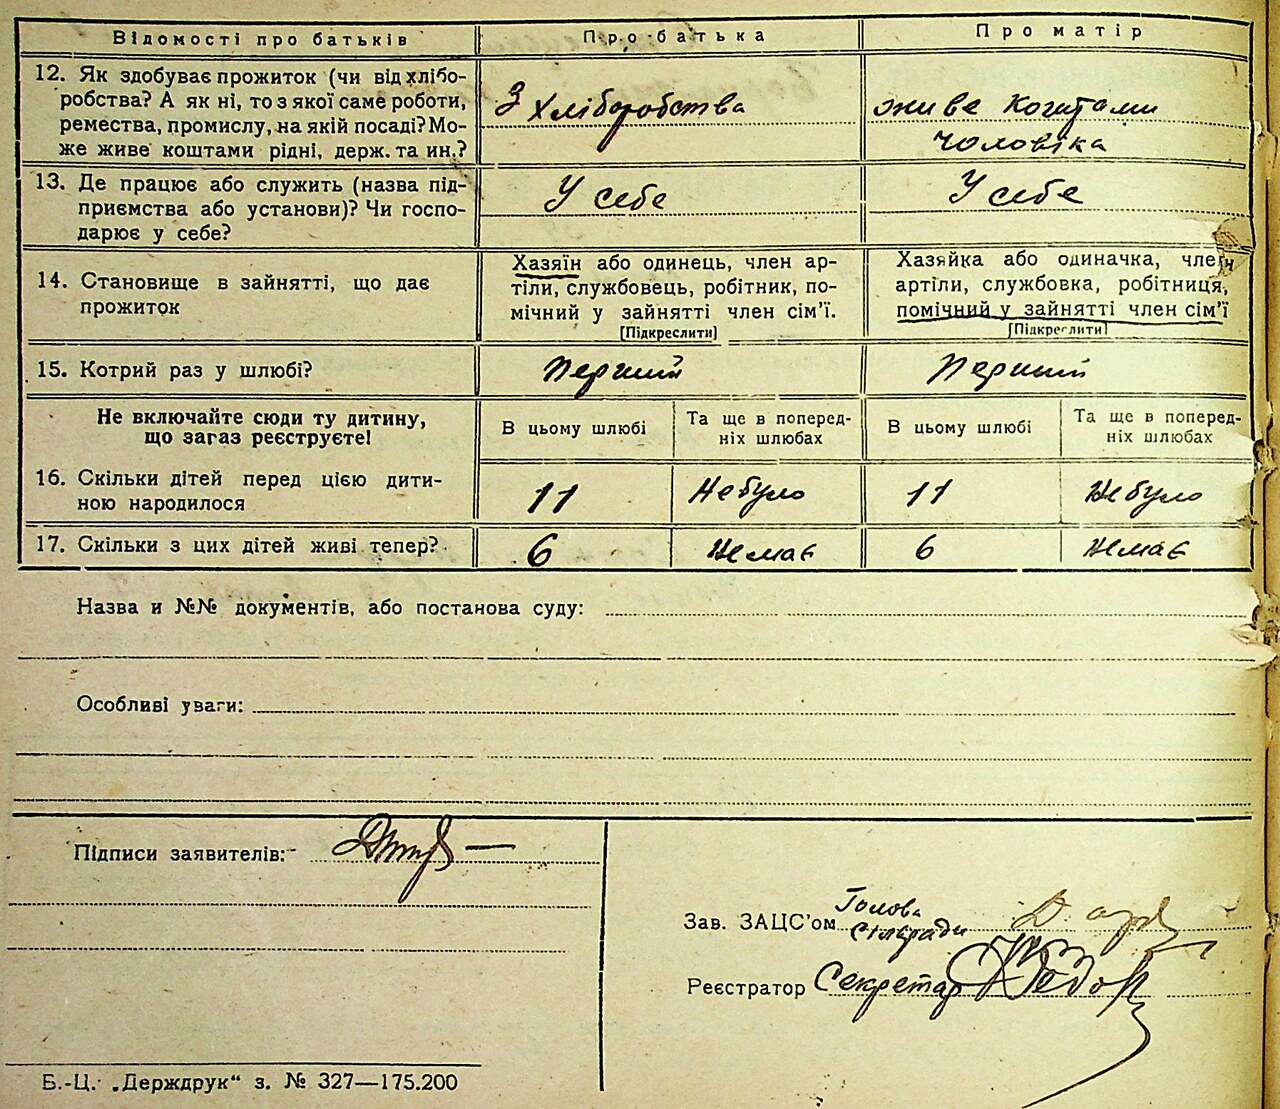 Відомості про батьків
Про батька
Про матір
12. Як здобуває прожиток (чи від хлібо-
робства? А як ні, то з якої саме роботи,
ремества, промислу, на якій посаді? Мо-
же живе коштами рідні, держ. та ин.?
З хліборобства
живе коштами
чоловіка
13. Де працює або служить (назва під-
приємства або установи)? Чи госпо-
дарює у себе?
У себе
У себе
14. Становище в зайнятті, що дає
прожиток
Хазяїн або одинець, член ар-
тіли, службовець, робітник, по-
мічний у зайнятті член сім'ї.
[Підкреслити]
Хазяйка або одиначка, член
артіли, службовка, робітниця,
помічний у зайнятті член сім'ї
[Підкреслити]
15. Котрий раз у шлюбі?
Перший
Перший
Не включайте сюди ту дитину,
що загаз реєструєте!
В цьому шлюбі
Та ще в поперед-
ніх шлюбах
В цьому шлюбі
Та ще в поперед-
ніх шлюбах
16. Скільки дітей перед цією дити-
ною народилося
11
Небуло
11
Небуло
17. Скільки з цих дітей живі тепер?
6
Немає
6
Немає
Назва и №№ документів, або постанова суду:
Особливі уваги:
Підписи заявителів:
Зав. ЗАЦС'ом Голова
сільради
Реєстратор Секретар
Б.-Ц. „Держдрук“ з. № 327—175.200